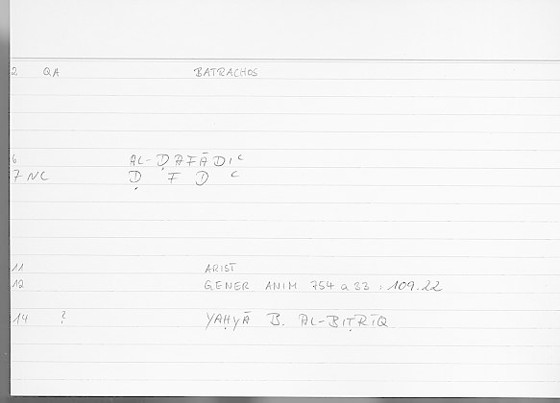 2 QA BATRACHOS
6 AL-ḌAFĀDIʿ
7 NC Ḍ F D ʿ
11 ARIST
12 GENER ANIM 754 a 33 : 109.22
14 ? YAḤYĀ B. AL-BIṬRĪQ